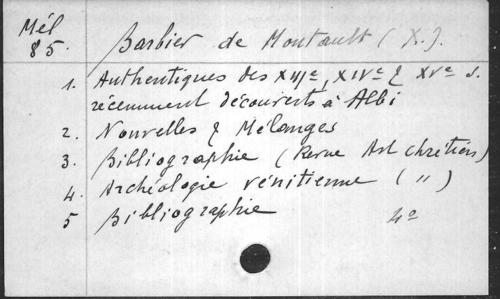 Mél
85.
Barbier de Montault (X.).
1. Authentiques des XIIIe, XIVe & XVe s.
récemment découverts à Albi
2. Nouvelles & Mélanges
3. Bibliographie (Revue Art chrétien)
4. Archéologie vénitienne ( " )
5 Bibliographie 4o